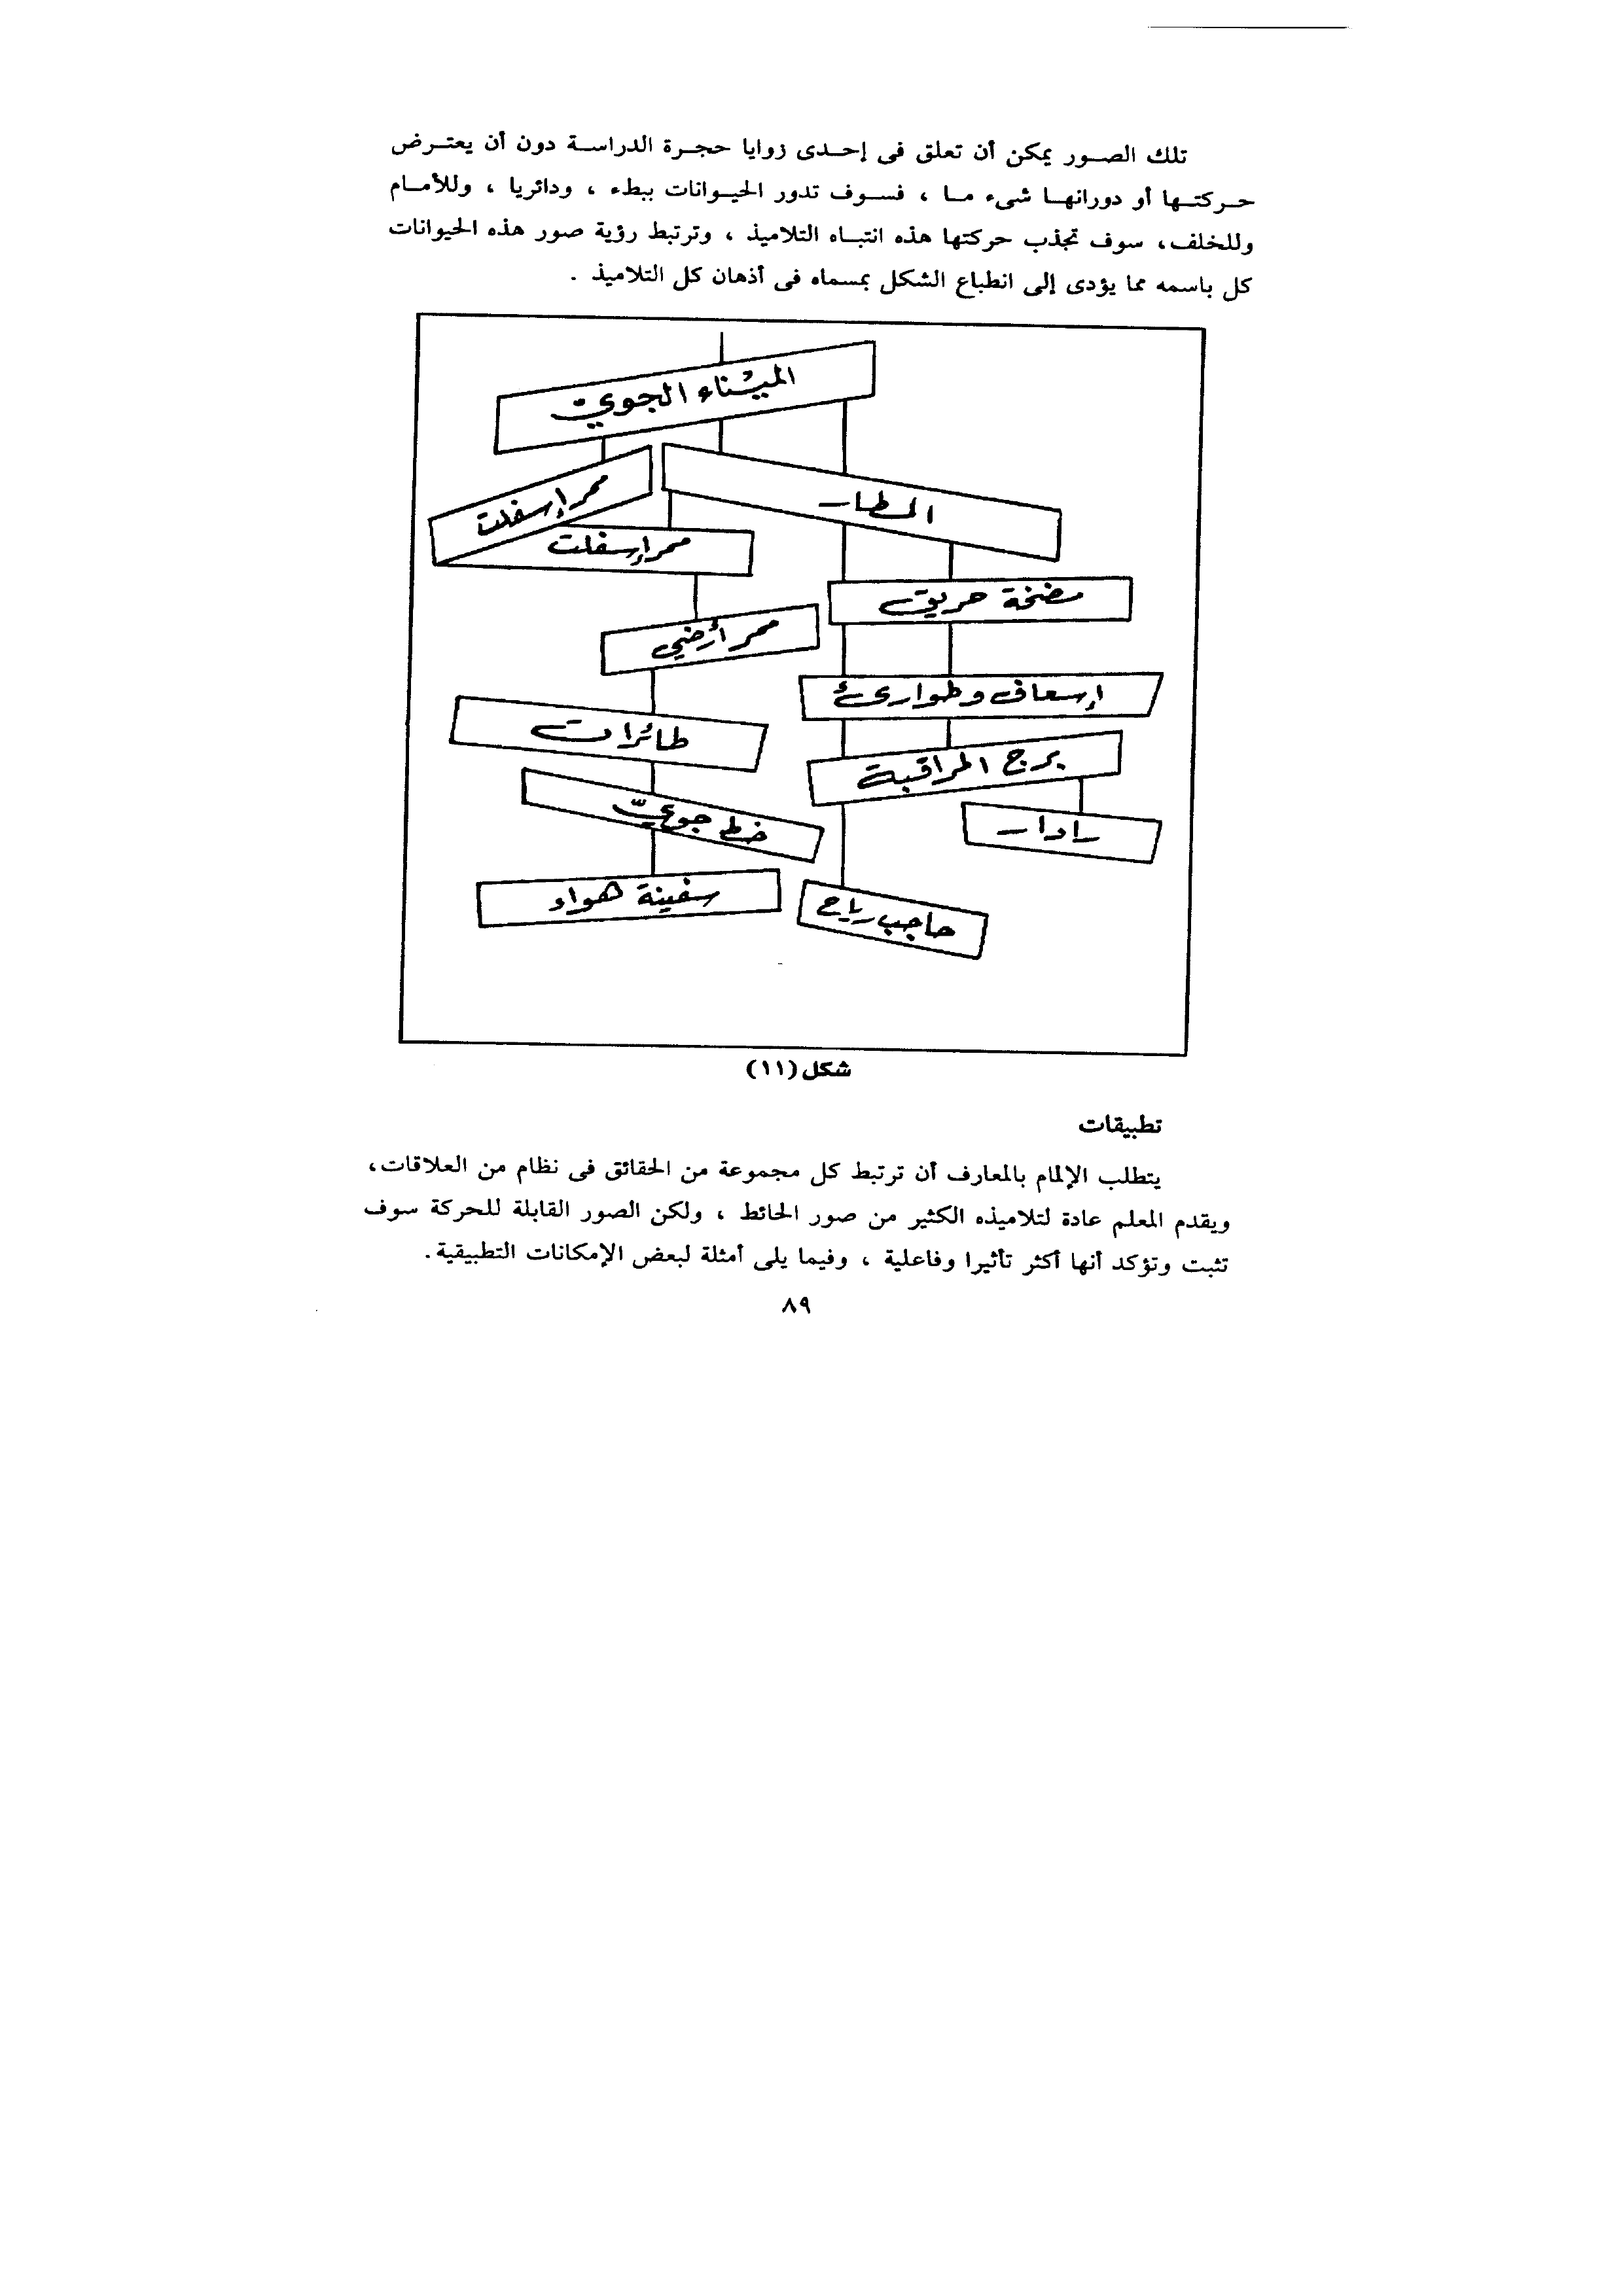 تلك الصور يمكن أن تعلق فى إحدى زوايا حجرة الدراسة دون أن يعترض
حركتها أو دورانها شىء ما ، فسوف تدور الحيوانات ببطء ، ودائريا ، وللأمام
وللخلف، سوف تجذب حركتها هذه انتباه التلاميذ ، وترتبط رؤية صور هذه الحيوانات
كل باسمه مما يؤدى إلى انطباع الشكل بمسماه فى أذهان كل التلاميذ .
الميناء الجوي
المطار
ممر إسفلت
ممر إسفلت
مضخة حريق
ممر أرضي
إسعاف وطوارئ
طائرات
برج المراقبة
خط جوي
رادار
سفينة هواء
حاجب رياح
شكل (١١)
تطبيقات
يتطلب الإلمام بالمعارف أن ترتبط كل مجموعة من الحقائق فى نظام من العلاقات،
ويقدم المعلم عادة لتلاميذه الكثير من صور الحائط ، ولكن الصور القابلة للحركة سوف
تثبت وتؤكد أنها أكثر تأثيرا وفاعلية ، وفيما يلى أمثلة لبعض الإمكانات التطبيقية.
٨٩